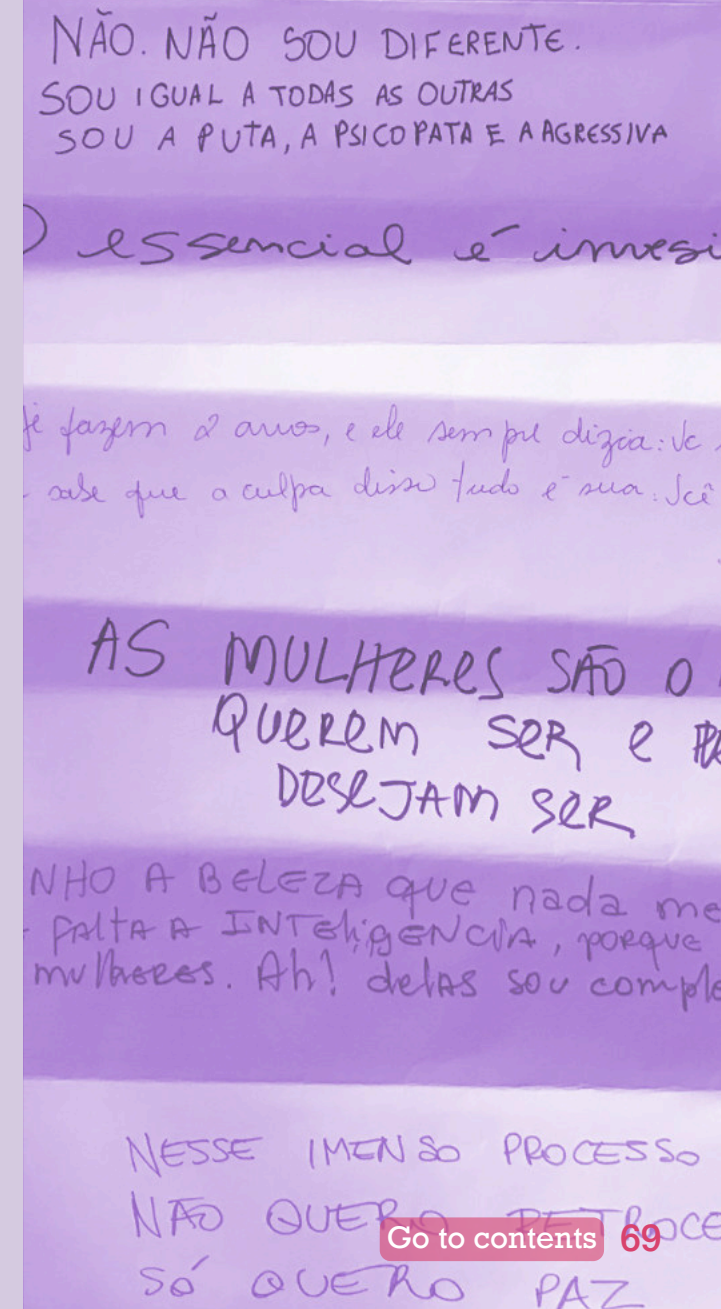 NÃO. NÃO SOU DIFERENTE.
SOU IGUAL A TODAS AS OUTRAS
SOU A PUTA, A PSICOPATA E A AGRESSIVA
O essencial é invesi
fazem 2 anos, e ele sempre dizia: Vc
sabe que a culpa disso tudo é sua. Vcê
AS MULHERES SÃO O
QUEREM SER E
DESEJAM SER
NHO A BELEZA que nada me
FALTA A INTEligENCIA, PORQUE
mulheres. Ah! delas sou comple
NESSE IMENSO PROCESSO
NÃO QUERO RETROCE
Go to contents 69
SÓ QUERO PAZ